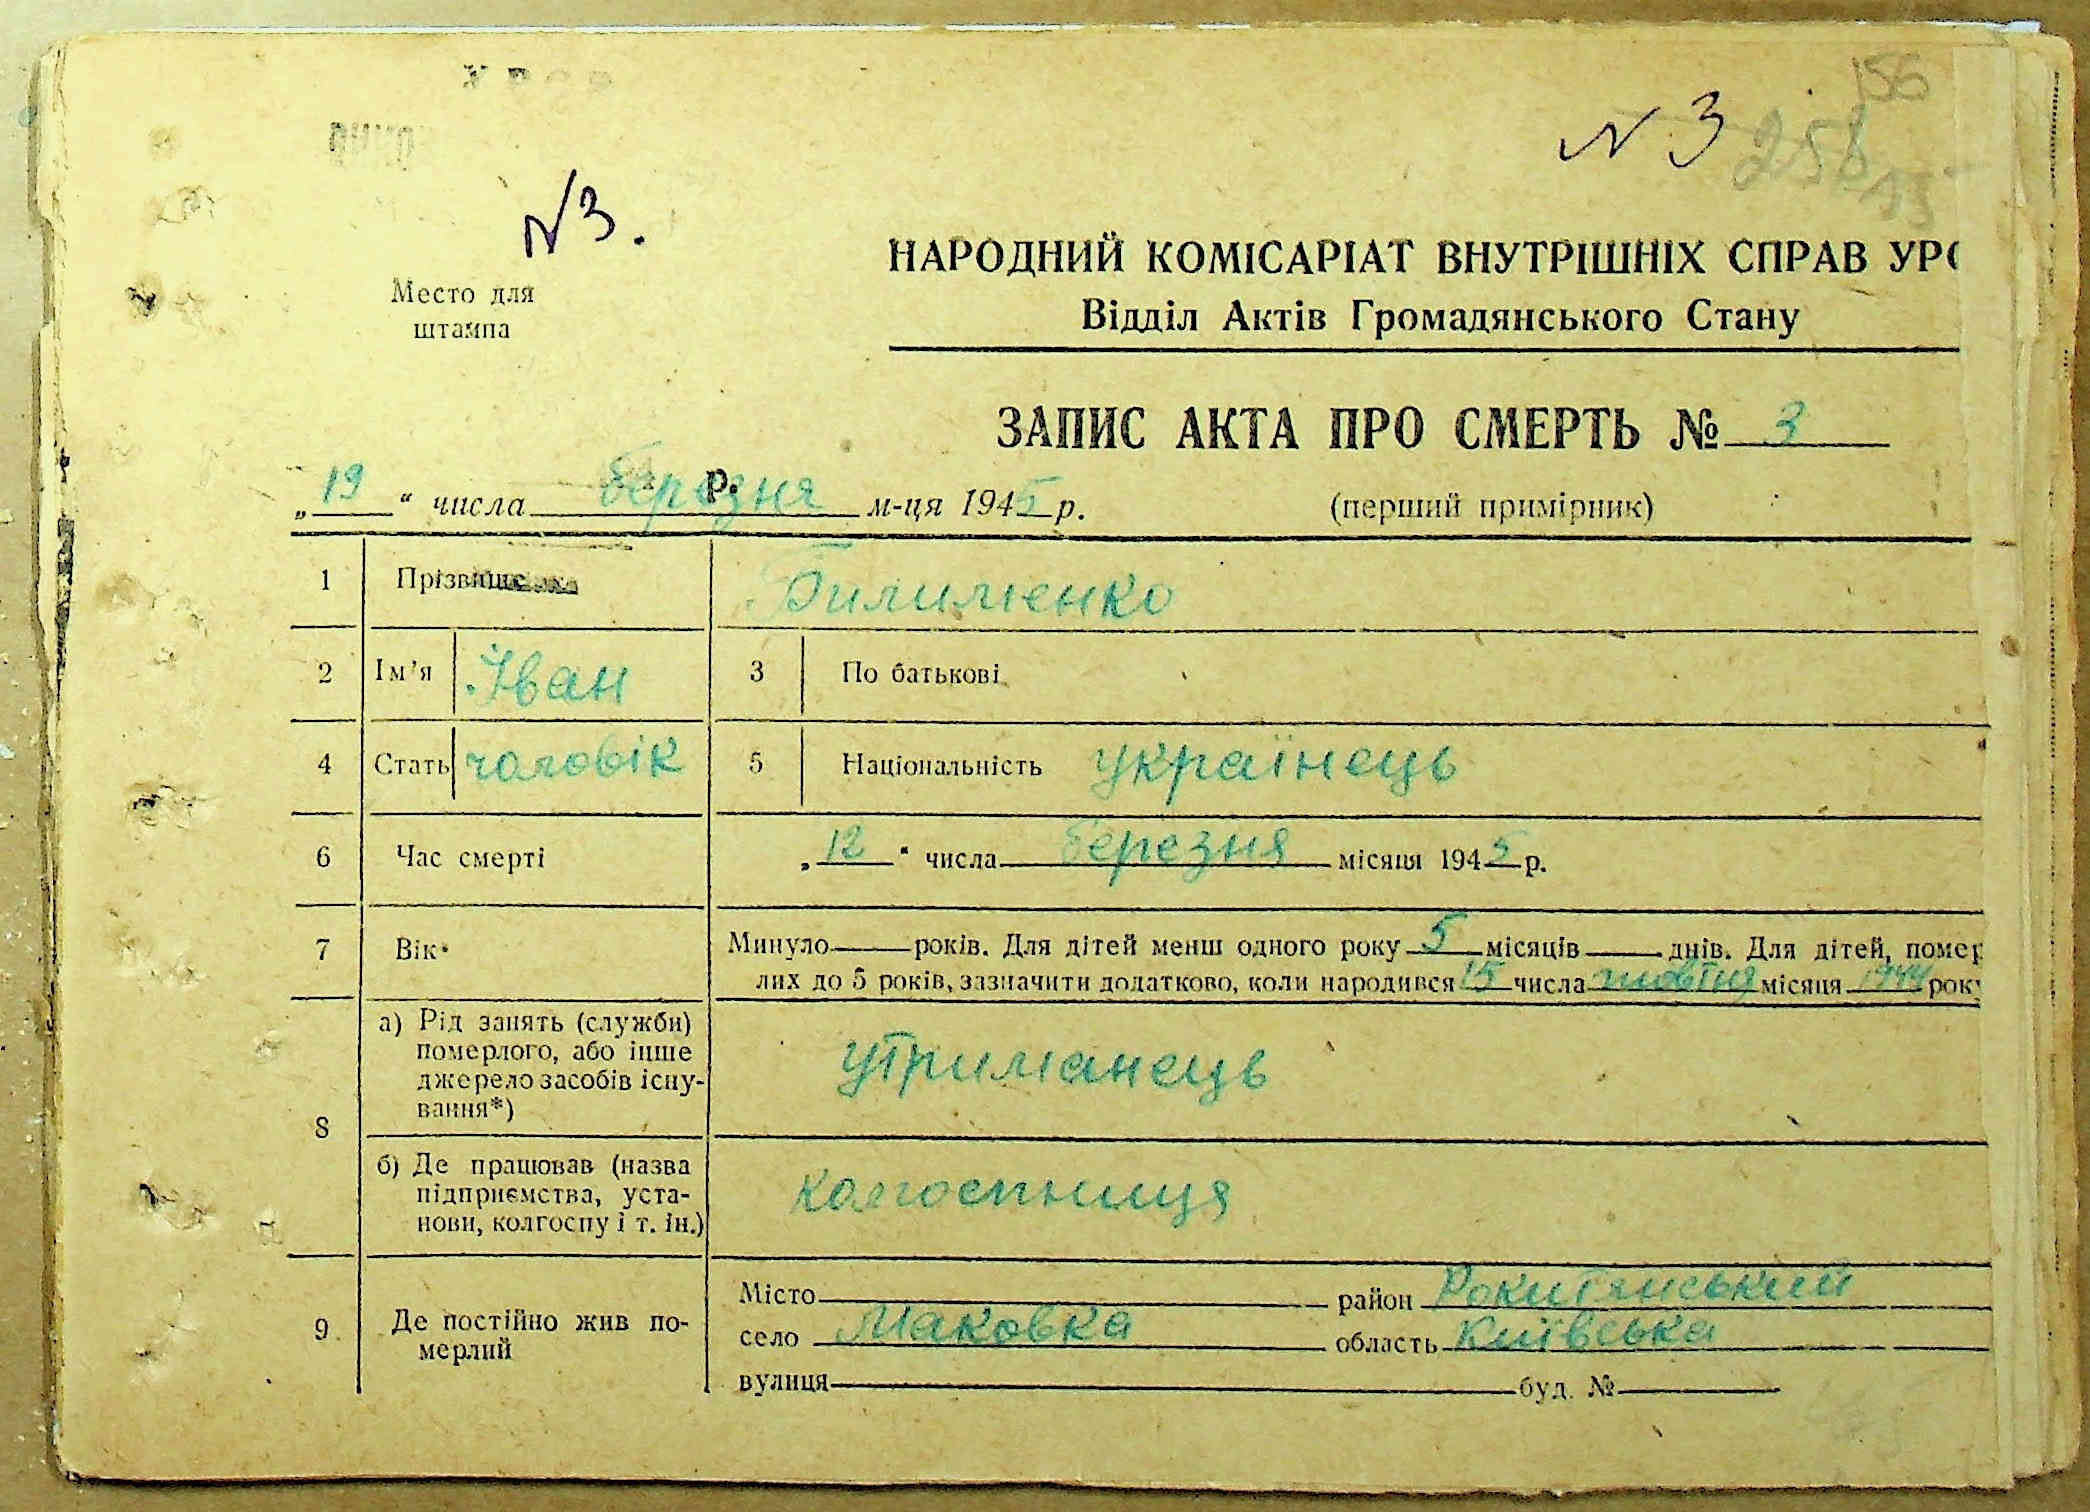 156
N 3 258
15
N3.
Место для
штампа
НАРОДНИЙ КОМІСАРІАТ ВНУТРІШНІХ СПРАВ УРС
Відділ Актів Громадянського Стану
ЗАПИС АКТА ПРО СМЕРТЬ № 3
„ 19 “ числа березня м-ця 1945 р. (перший примірник)
р.
1 Прізвище Билименко
2 Ім’я Іван 3 По батькові
4 Стать чоловік 5 Національність українець
6 Час смерті „ 12 “ числа березня місяця 1945 р.
7 Вік Минуло років. Для дітей менш одного року 5 місяців днів. Для дітей, помер
лих до 5 років, зазначити додатково, коли народився 15 числа жовтня місяця 1944 року
8 а) Рід занять (служби)
померлого, або інше
джерело засобів існу-
вання*) утриманець
б) Де працював (назва
підприємства, уста-
нови, колгоспу і т. ін.) колгоспниця
9 Де постійно жив по-
мерлий
Місто район Рокитянський
село Маковка область Київська
вулиця буд. №